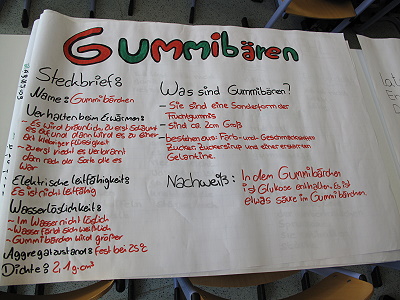 Gummibären
Steckbrief:
Name: Gummibärchen
Verhalten beim Erwärmen:
- Es wird bräunlich, zuerst schäumt
es auf und dann wird es zu einer
klebriger flüssigkeit
- zuerst riecht es verbrannt
dann nach der Sorte die es
war
Elektrische leitfähigkeit:
Es ist nicht leitfähig
Wasserlöslichkeit:
- Im Wasser nicht löslich
- Wasser färbt sich weißlich
- Gummibärchen wird größer
Aggregatzustand: fest bei 25°C
Dichte: 2,1 g·cm³
Was sind Gummibären?
- Sie sind eine Sonderform der
Fruchtgummis
- Sind ca. 2cm Groß
- bestehen aus: Farb- und Geschmacks
Zucker, Zuckersirup und einer erstarrten
Gelantine.
Nachweiß: In dem Gummibärchen
ist Glukose enthalten. Es ist
etwas säure im Gummibärchen.